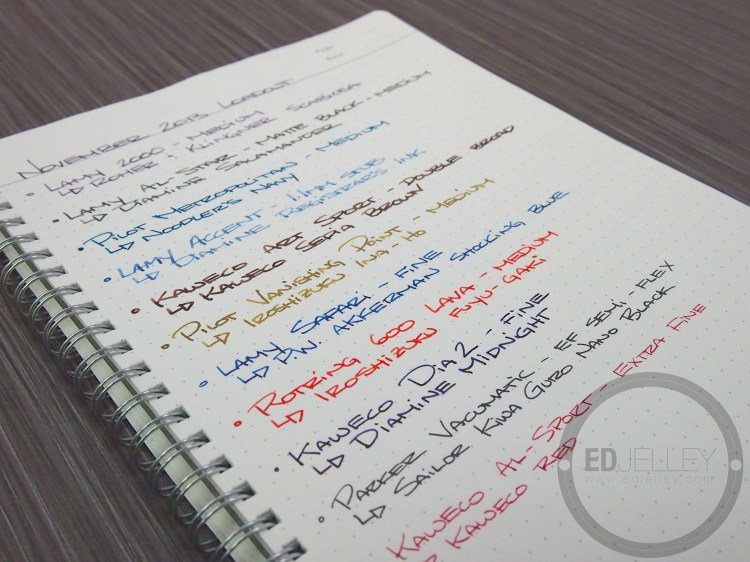 November 2013 Loadout
• Lamy 2000 - Medium
↳ Rohrer & Klingner Scabiosa
• Lamy Al-Star - Matte Black - Medium
↳ Diamine Salamander
• Pilot Metropolitan - Medium
↳ Noodler's Navy
• Lamy Accent - 1.1mm Stub
↳ Diamine Registrar's Ink
• Kaweco Art Sport - Double Broad
↳ Kaweco Sepia Brown
• Pilot Vanishing Point - Medium
↳ Iroshizuku Ina-Ho
• Lamy Safari - Fine
↳ P.W. Akkerman Shocking Blue
• Rotring 600 Lava - Medium
↳ Iroshizuku Fuyu-Gaki
• Kaweco Dia2 - Fine
↳ Diamine Midnight
• Parker Vacumatic - EF Semi-Flex
↳ Sailor Kiwa Guro Nano Black
Kaweco Al-Sport - Extra Fine
↳ Kaweco Red
EDJELLEY
www.edjelley.com